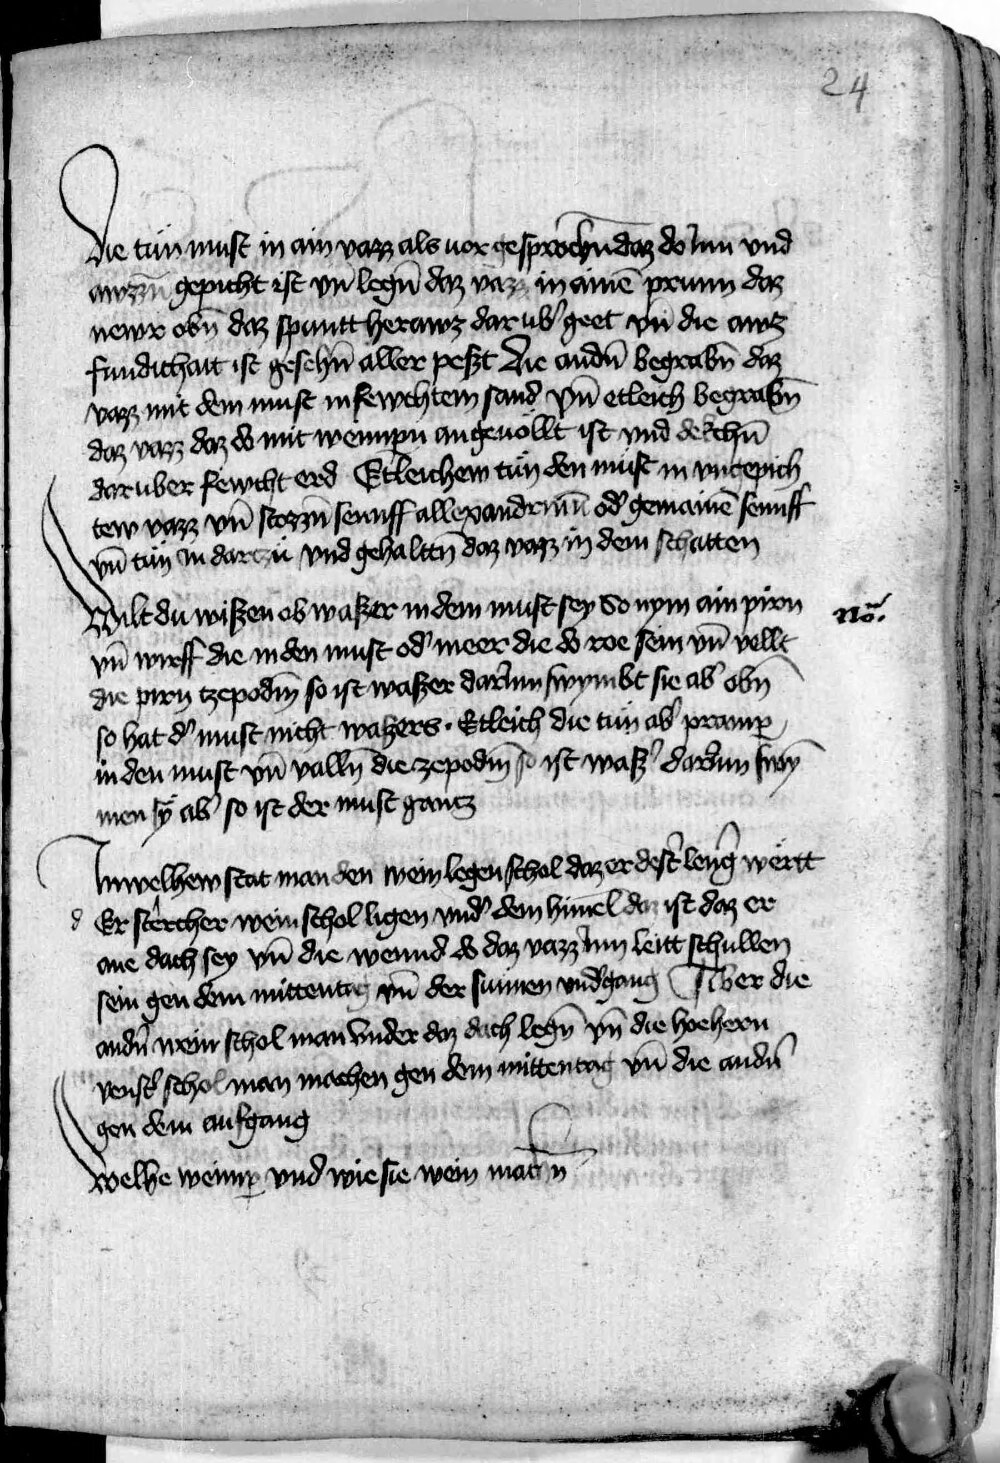 24
Die tun must in ain vazz als vor gesprochn̄ daz dorinn vnd
awzzn̄ gepicht ist vn̄ legn̄ daz vazz in ainē prunn daz
newr obn̄ daz spuntt herawz darub' geet vn̄ die awz
fundichait ist gesehn̄ aller peszt Die andn̄ begrabn̄ daz
vazz mit dem must in fewchtem sand vn̄ etleich begrabn̄
daz vazz daz do mit weinpn angevöllt ist vnd dekchn̄
daruber fewcht erd Etleichew tün den must in vngepich
tew vazz vn̄ stozzn̄ senuff allexandrinū od' gemainē senuff
vn̄ tün in darczü vnd gehalttn̄ daz vazz in dem schatten
Wilt du wiszen ob waszer in dem must sey So nym ain pirn
vn̄ wirff die in den must od' meer die do roe sein vn̄ vellt
die pirn tzepodm̄ so ist waszer darinn swymbt sie ab' obn̄
so hat d' must nicht waszers · Etleich die tün ab' pramp
in den must vn̄ valln̄ die zepodm̄ so ist wasz' darinn swȳ
men sy ab' so ist der must gantz
No.
In welhew stat man den wein legen schol daz er dest' leng' wërtt
d Er stercher wein schol ligen vnd' dem himel daz ist daz er
ane dach sey vn̄ die wennd do daz vazz inn leitt schullen
sein gen dem mittentag vn̄ der sunnen vnd'gang Aber die
andn̄ wein schol man vnder daz dach legn̄ vn̄ die hoehern
venst' schol man machen gen dem mittentag vn̄ die andn̄
gen dem aufgang
Welhe weinp vnd wie sie wein machn